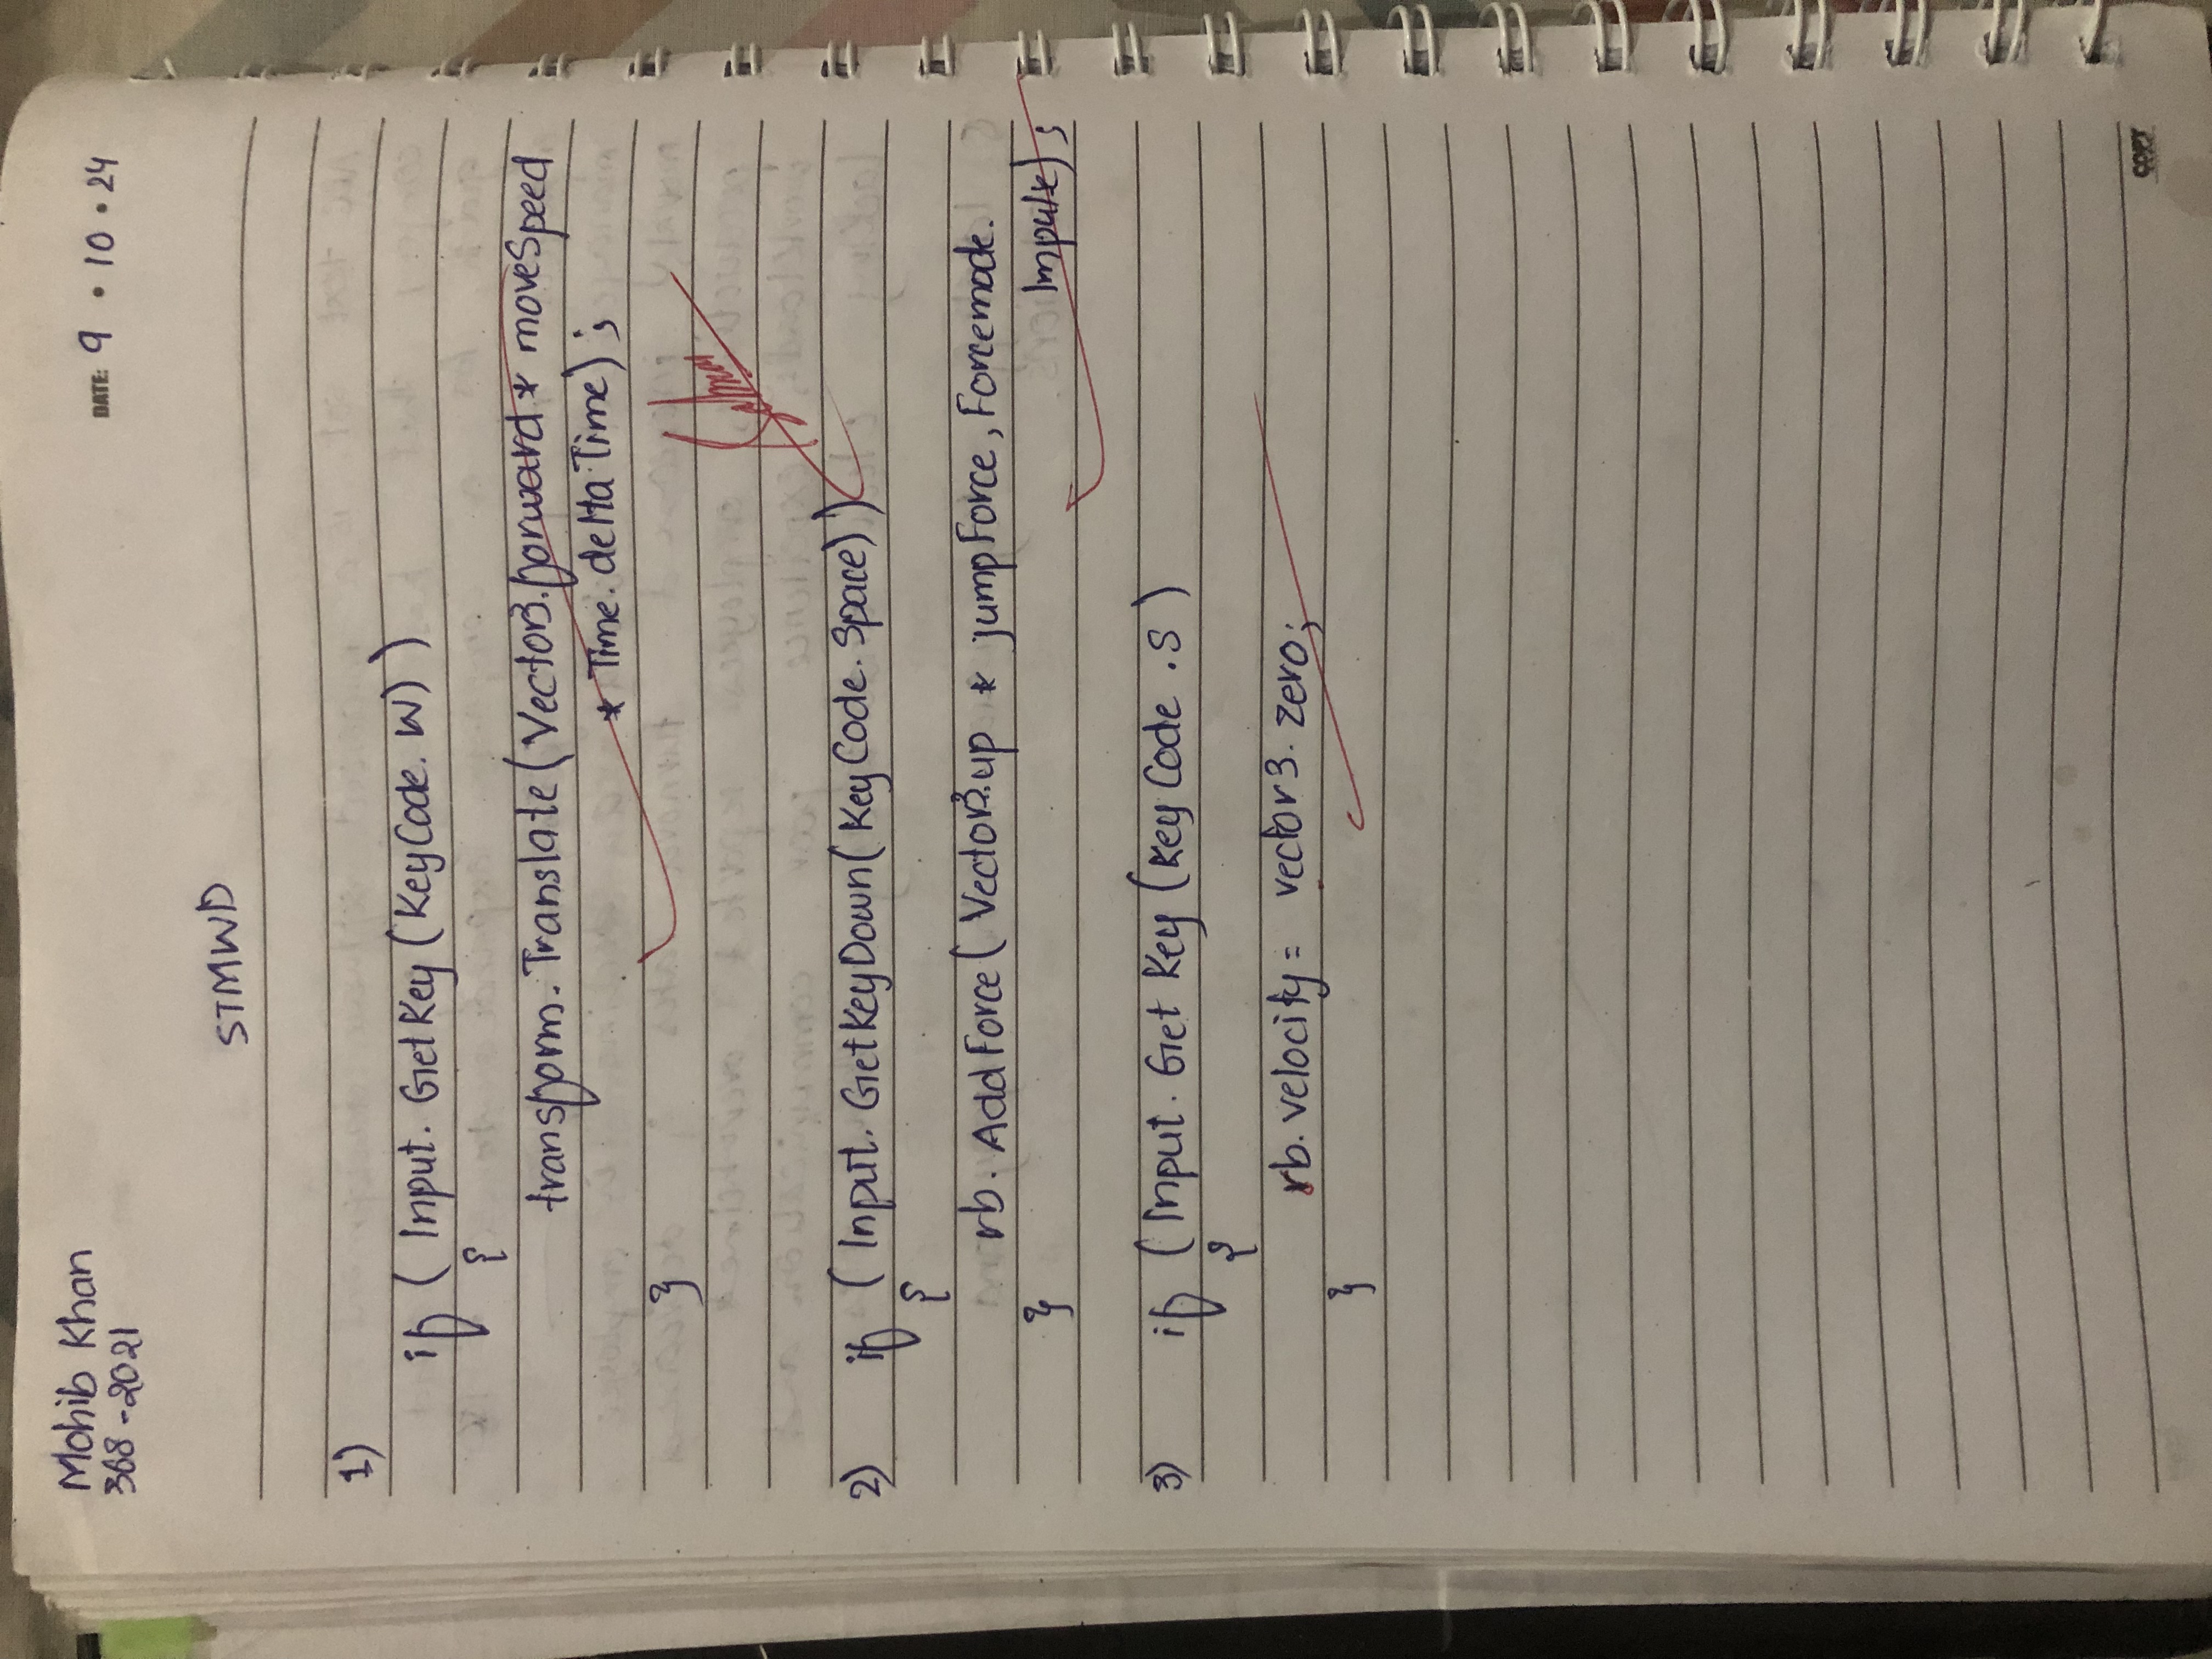 Mohib Khan
368-2021
DATE: 9 • 10 • 24
STMWD
1)
if ( Input. GetKey (KeyCode. W) )
{
transform. Translate (Vector3.forward * moveSpeed
* Time. deltaTime) ;
}
Salman
2) if ( Input. GetKeyDown( KeyCode. Space) )
{
rb. AddForce ( Vector3.up * jumpForce, Forcemode.
Impulse) ;
}
3) if ( Input. Get Key (Key Code .S )
{
rb. velocity = vector3. zero;
}
COPY